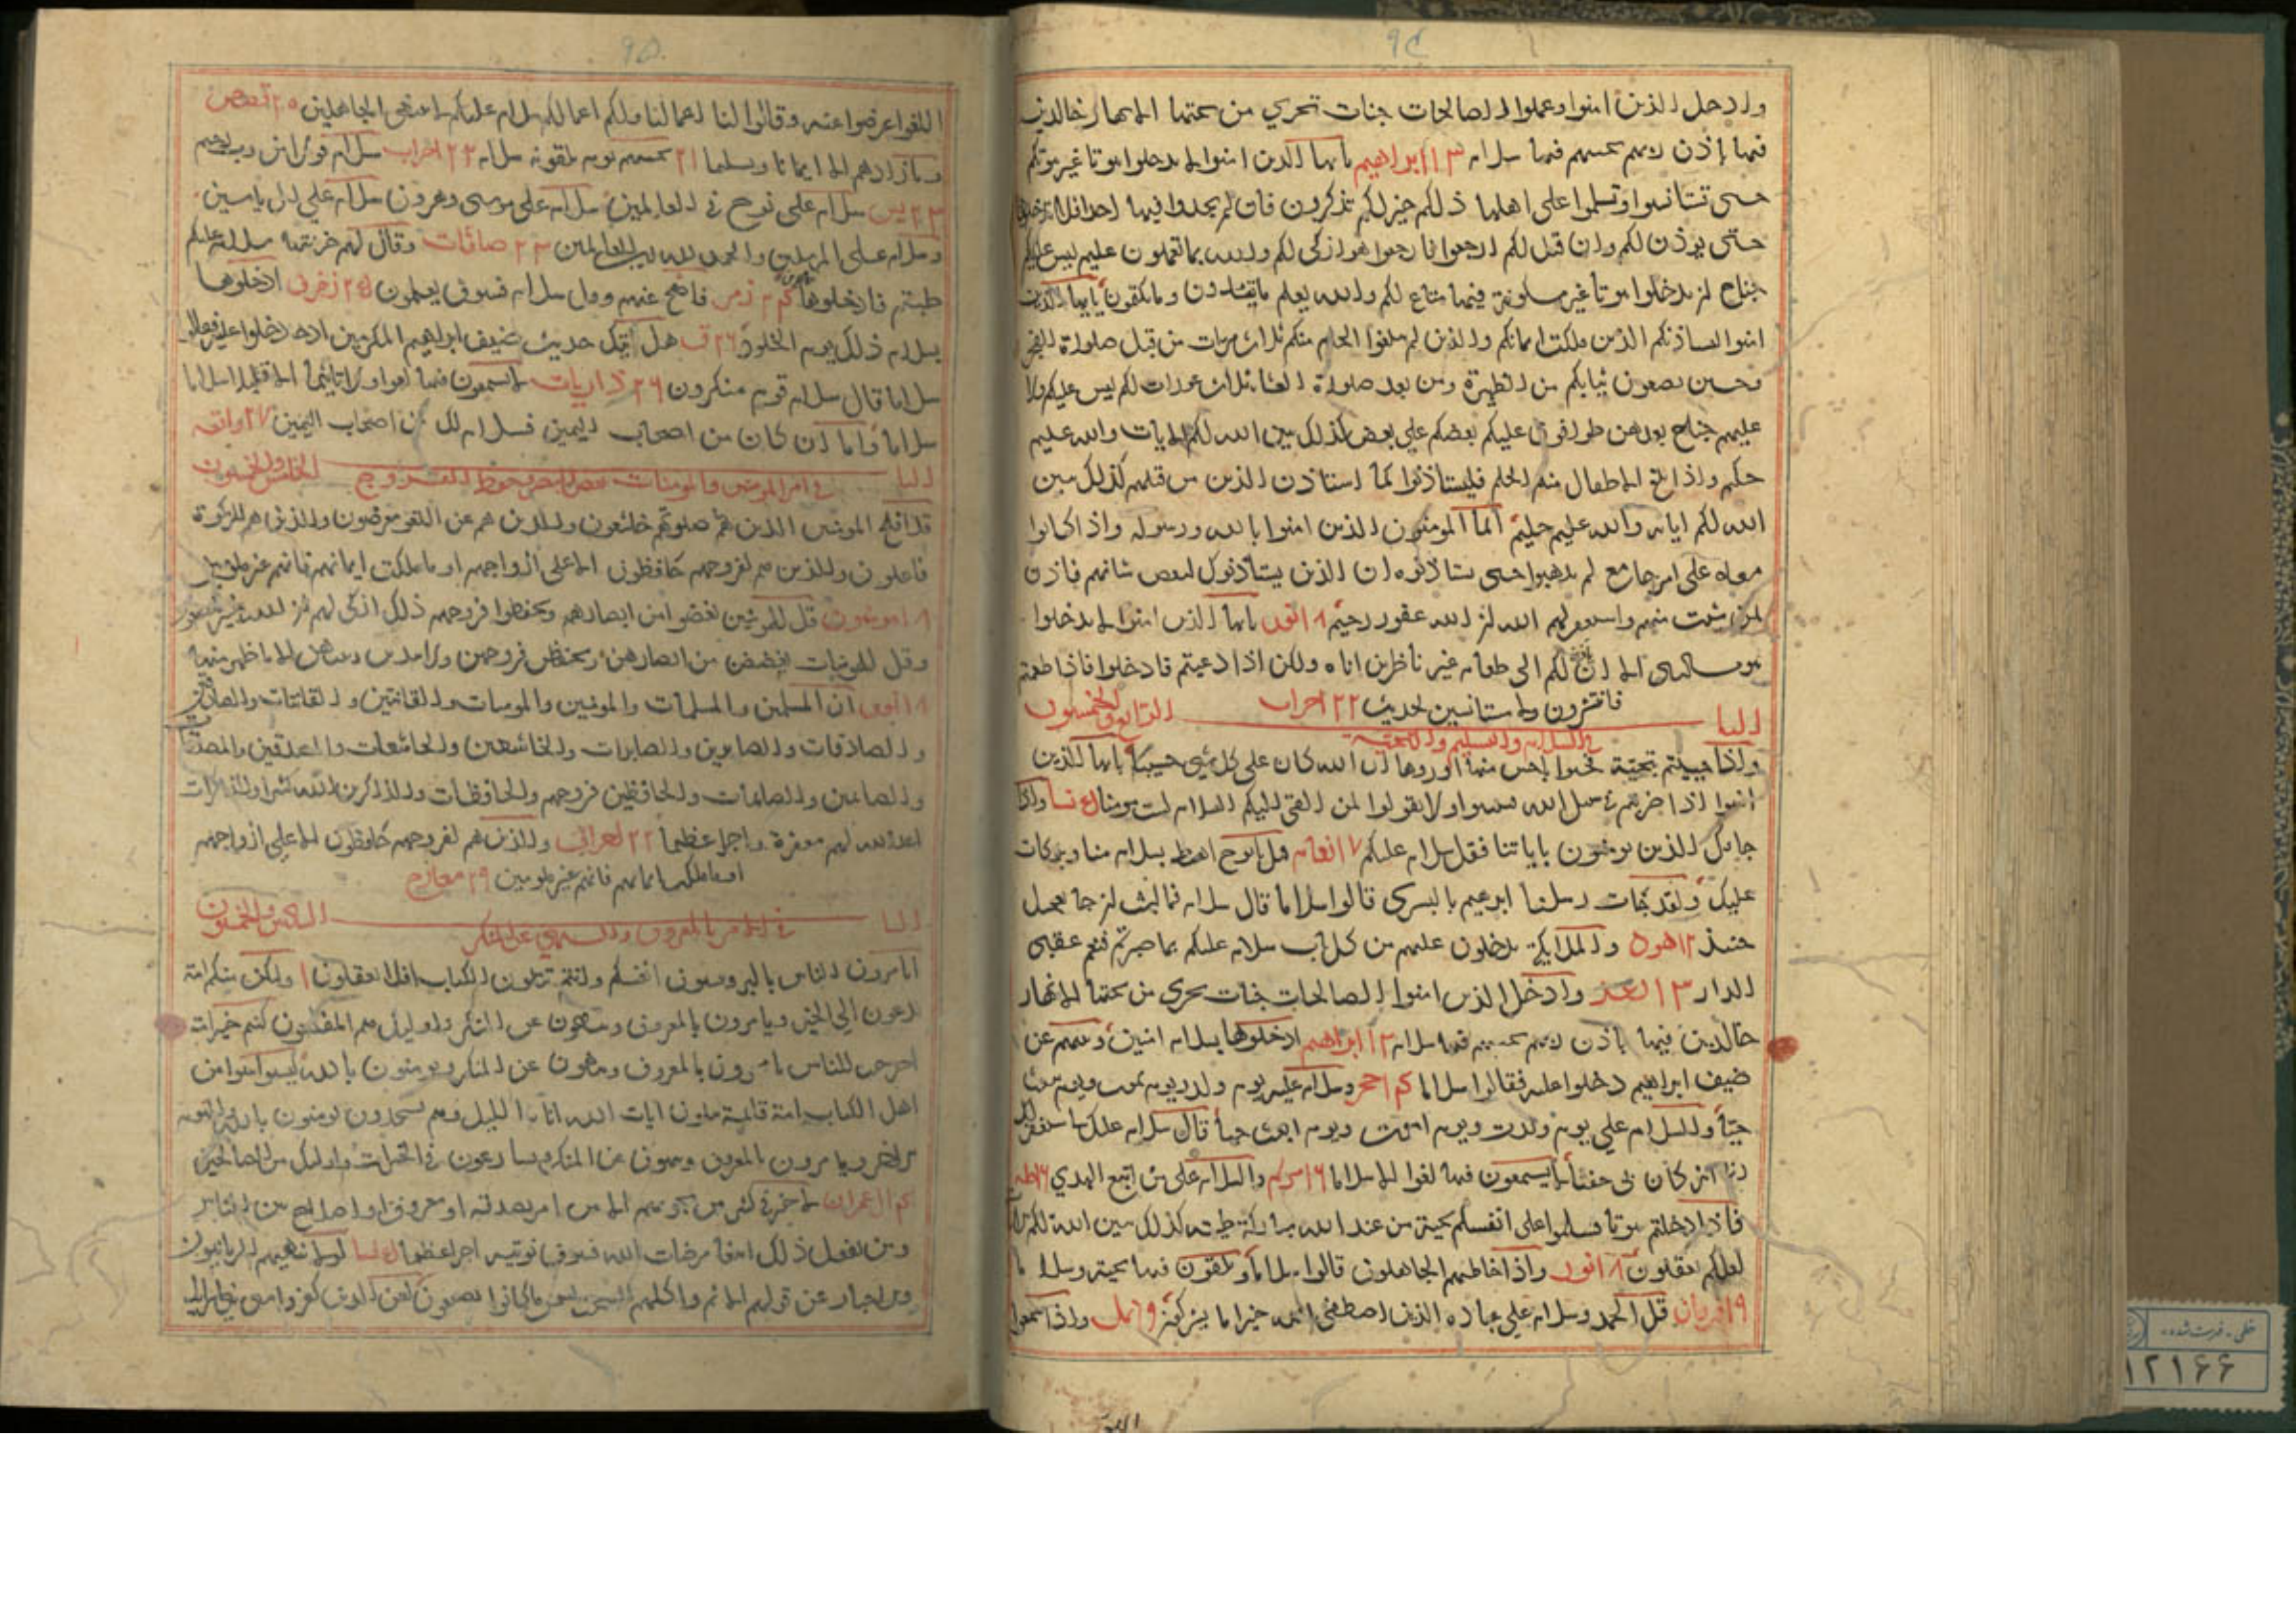 وادخل الذين امنوا وعملوا الصالحات جنات تجري من تحتها الانهار خالدين
فيها باذن ربهم تحيتهم فيها سلام ١٣ ابراهيم يا ايها الذين امنوا لا تدخلوا بيوتا غير بيوتكم
حتى تستانسوا وتسلموا على اهلها ذلكم خير لكم تذكرون فان لم تجدوا فيها احدا فلا تدخلوها
حتى يوذن لكم وان قيل لكم ارجعوا فارجعوا هو ازكى لكم والله بما تعملون عليم ليس عليكم
جناح ان تدخلوا بيوتا غير مسكونة فيها متاع لكم والله يعلم ما تبدون وما تكتمون يا ايها الذين
امنوا ليستاذنكم الذين ملكت ايمانكم والذين لم يبلغوا الحلم منكم ثلاث مرات من قبل صلوة الفجر
وحين تضعون ثيابكم من الظهيرة ومن بعد صلوة العشا ثلاث عورات لكم ليس عليكم ولا
عليهم جناح بعدهن طوافون عليكم بعضكم على بعض كذلك يبين الله لكم الايات والله عليم
حكيم واذا بلغ الاطفال منكم الحلم فليستاذنوا كما استاذن الذين من قبلهم كذلك يبين
الله لكم اياته والله عليم حكيم انما المومنون الذين امنوا بالله ورسوله واذا كانوا
معه على امر جامع لم يذهبوا حتى يستاذنوه ان الذين يستاذنوك لبعض شانهم فاذن
لمن شئت منهم واستغفر لهم الله ان الله غفور رحيم ١٨ النور يا ايها الذين امنوا لا تدخلوا
بيوت النبي الا ان يوذن لكم الى طعام غير ناظرين اناه ولكن اذا دعيتم فادخلوا فاذا طعمتم
فانتشروا ولا مستانسين لحديث ٢٢ احزاب
الباب الرابع والخمسون
في السلام والتسليم والتحية
واذا حييتم بتحية فحيوا باحسن منها او ردوها ان الله كان على كل شي حسيبا يا ايها الذين
امنوا اذا ضربتم في سبيل الله فتبينوا ولا تقولوا لمن القى اليكم السلام لست مومنا نسا واذا
جاءك الذين يومنون باياتنا فقل سلام عليكم ٧ انعام قيل يا نوح اهبط بسلام منا وبركات
عليك ولقد جات رسلنا ابرهيم بالبشرى قالوا سلاما قال سلام فما لبث ان جا بعجل
حنيذ ١٢ هود والملايكة يدخلون عليهم من كل باب سلام عليكم بما صبرتم فنعم عقبى
الدار ١٣ الرعد وادخل الذين امنوا الصالحات جنات تجري من تحتها الانهار
خالدين فيها باذن ربهم تحيتهم فيها سلام ١٣ ابراهيم ادخلوها بسلام امنين ونبئهم عن
ضيف ابراهيم دخلوا عليه فقالوا سلاما حجر وسلام عليه يوم ولد ويوم يموت ويوم يبعث
حيا والسلام علي يوم ولدت ويوم اموت ويوم ابعث حيا قال سلام عليك ساستغفر لك
ربي انه كان بي حفيا لا يسمعون فيها لغوا الا سلاما ١٦ مريم والسلام على من اتبع الهدى ١٦ طه
فاذا دخلتم بيوتا فسلموا على انفسكم تحية من عند الله مباركة طيبة كذلك يبين الله لكم
لعلكم تعقلون ١٨ النور واذا خاطبهم الجاهلون قالوا سلاما ويلقون فيها تحية وسلاما
١٩ فرقان قل الحمد وسلام على عباده الذين اصطفى الله خير اما يشركون نمل واذا سمعوا
اللغو اعرضوا عنه وقالوا لنا اعمالنا ولكم اعمالكم سلام عليكم لا نبتغي الجاهلين ٢٠ قصص
وما زادهم الا ايمانا وتسليما ٢١ تحيتهم يوم يلقونه سلام ٢٢ احزاب سلام قولا من رب رحيم
٢٣ يس سلام على نوح في العالمين سلام على موسى وهرون سلام على ال ياسين
وسلام على المرسلين والحمد لله رب العالمين ٢٣ صافات وقال لهم خزنتها سلام عليكم
طبتم فادخلوها زمر فاصفح عنهم وقل سلام فسوف يعلمون ٢٥ زخرف ادخلوها
بسلام ذلك يوم الخلود ٢٦ ق هل اتيك حديث ضيف ابراهيم المكرمين اذ دخلوا عليه فقالوا
سلاما قال سلام قوم منكرون ٢٦ ذاريات لا يسمعون فيها لغوا ولا تاثيما الا قيلا سلاما
سلاما واما ان كان من اصحاب اليمين فسلام لك من اصحاب اليمين ٢٧ واقعه
الباب الخامس والخمسون
في امر المومنين والمومنات بغض البصر وحفظ الفروج
قد افلح المومنين الذين هم صلوتهم خاشعون والذين هم عن اللغو معرضون والذين هم للزكوة
فاعلون والذين هم لفروجهم حافظون الا على ازواجهم او ما ملكت ايمانهم فانهم غير ملومين
١٨ مومنون قل للمومنين يغضوا من ابصارهم ويحفظوا فروجهم ذلك ازكى لهم ان الله خبير بما يصنعون
وقل للمومنات يغضضن من ابصارهن ويحفظن فروجهن ولا يبدين زينتهن الا ما ظهر منها
١٨ النور ان المسلمين والمسلمات والمومنين والمومنات والقانتين والقانتات والصادقين
والصادقات والصابرين والصابرات والخاشعين والخاشعات والمتصدقين والمتصدقات
والصائمين والصائمات والحافظين فروجهم والحافظات والذاكرين الله كثيرا والذاكرات
اعد الله لهم مغفرة واجرا عظيما ٢٢ احزاب والذين هم لفروجهم حافظون الا على ازواجهم
او ما ملكت ايمانهم فانهم غير ملومين ٢٩ معارج
الباب السادس والخمسون
في الامر بالمعروف والنهي عن المنكر
اتامرون الناس بالبر وتنسون انفسكم وانتم تتلون الكتاب افلا تعقلون ١ ولتكن منكم امة
يدعون الى الخير ويامرون بالمعروف وينهون عن المنكر واوليك هم المفلحون كنتم خير امة
اخرجت للناس تامرون بالمعروف وتنهون عن المنكر وتومنون بالله ليسوا سوا من
اهل الكتاب امة قائمة يتلون ايات الله انا الليل وهم يسجدون يومنون بالله واليوم
الاخر ويامرون بالمعروف وينهون عن المنكر ويسارعون في الخيرات واوليك من الصالحين
ال عمران لا خير في كثير من نجويهم الا من امر بصدقة او معروف او اصلاح بين الناس
ومن يفعل ذلك ابتغا مرضات الله فسوف نوتيه اجرا عظيما نسا لولا ينهيهم الربانيون
والاحبار عن قولهم الاثم واكلهم السحت لبئس ما كانوا يصنعون لعن الذين كفروا من بني اسرائيل
خطي - فهرست شده
١٢١٦٦